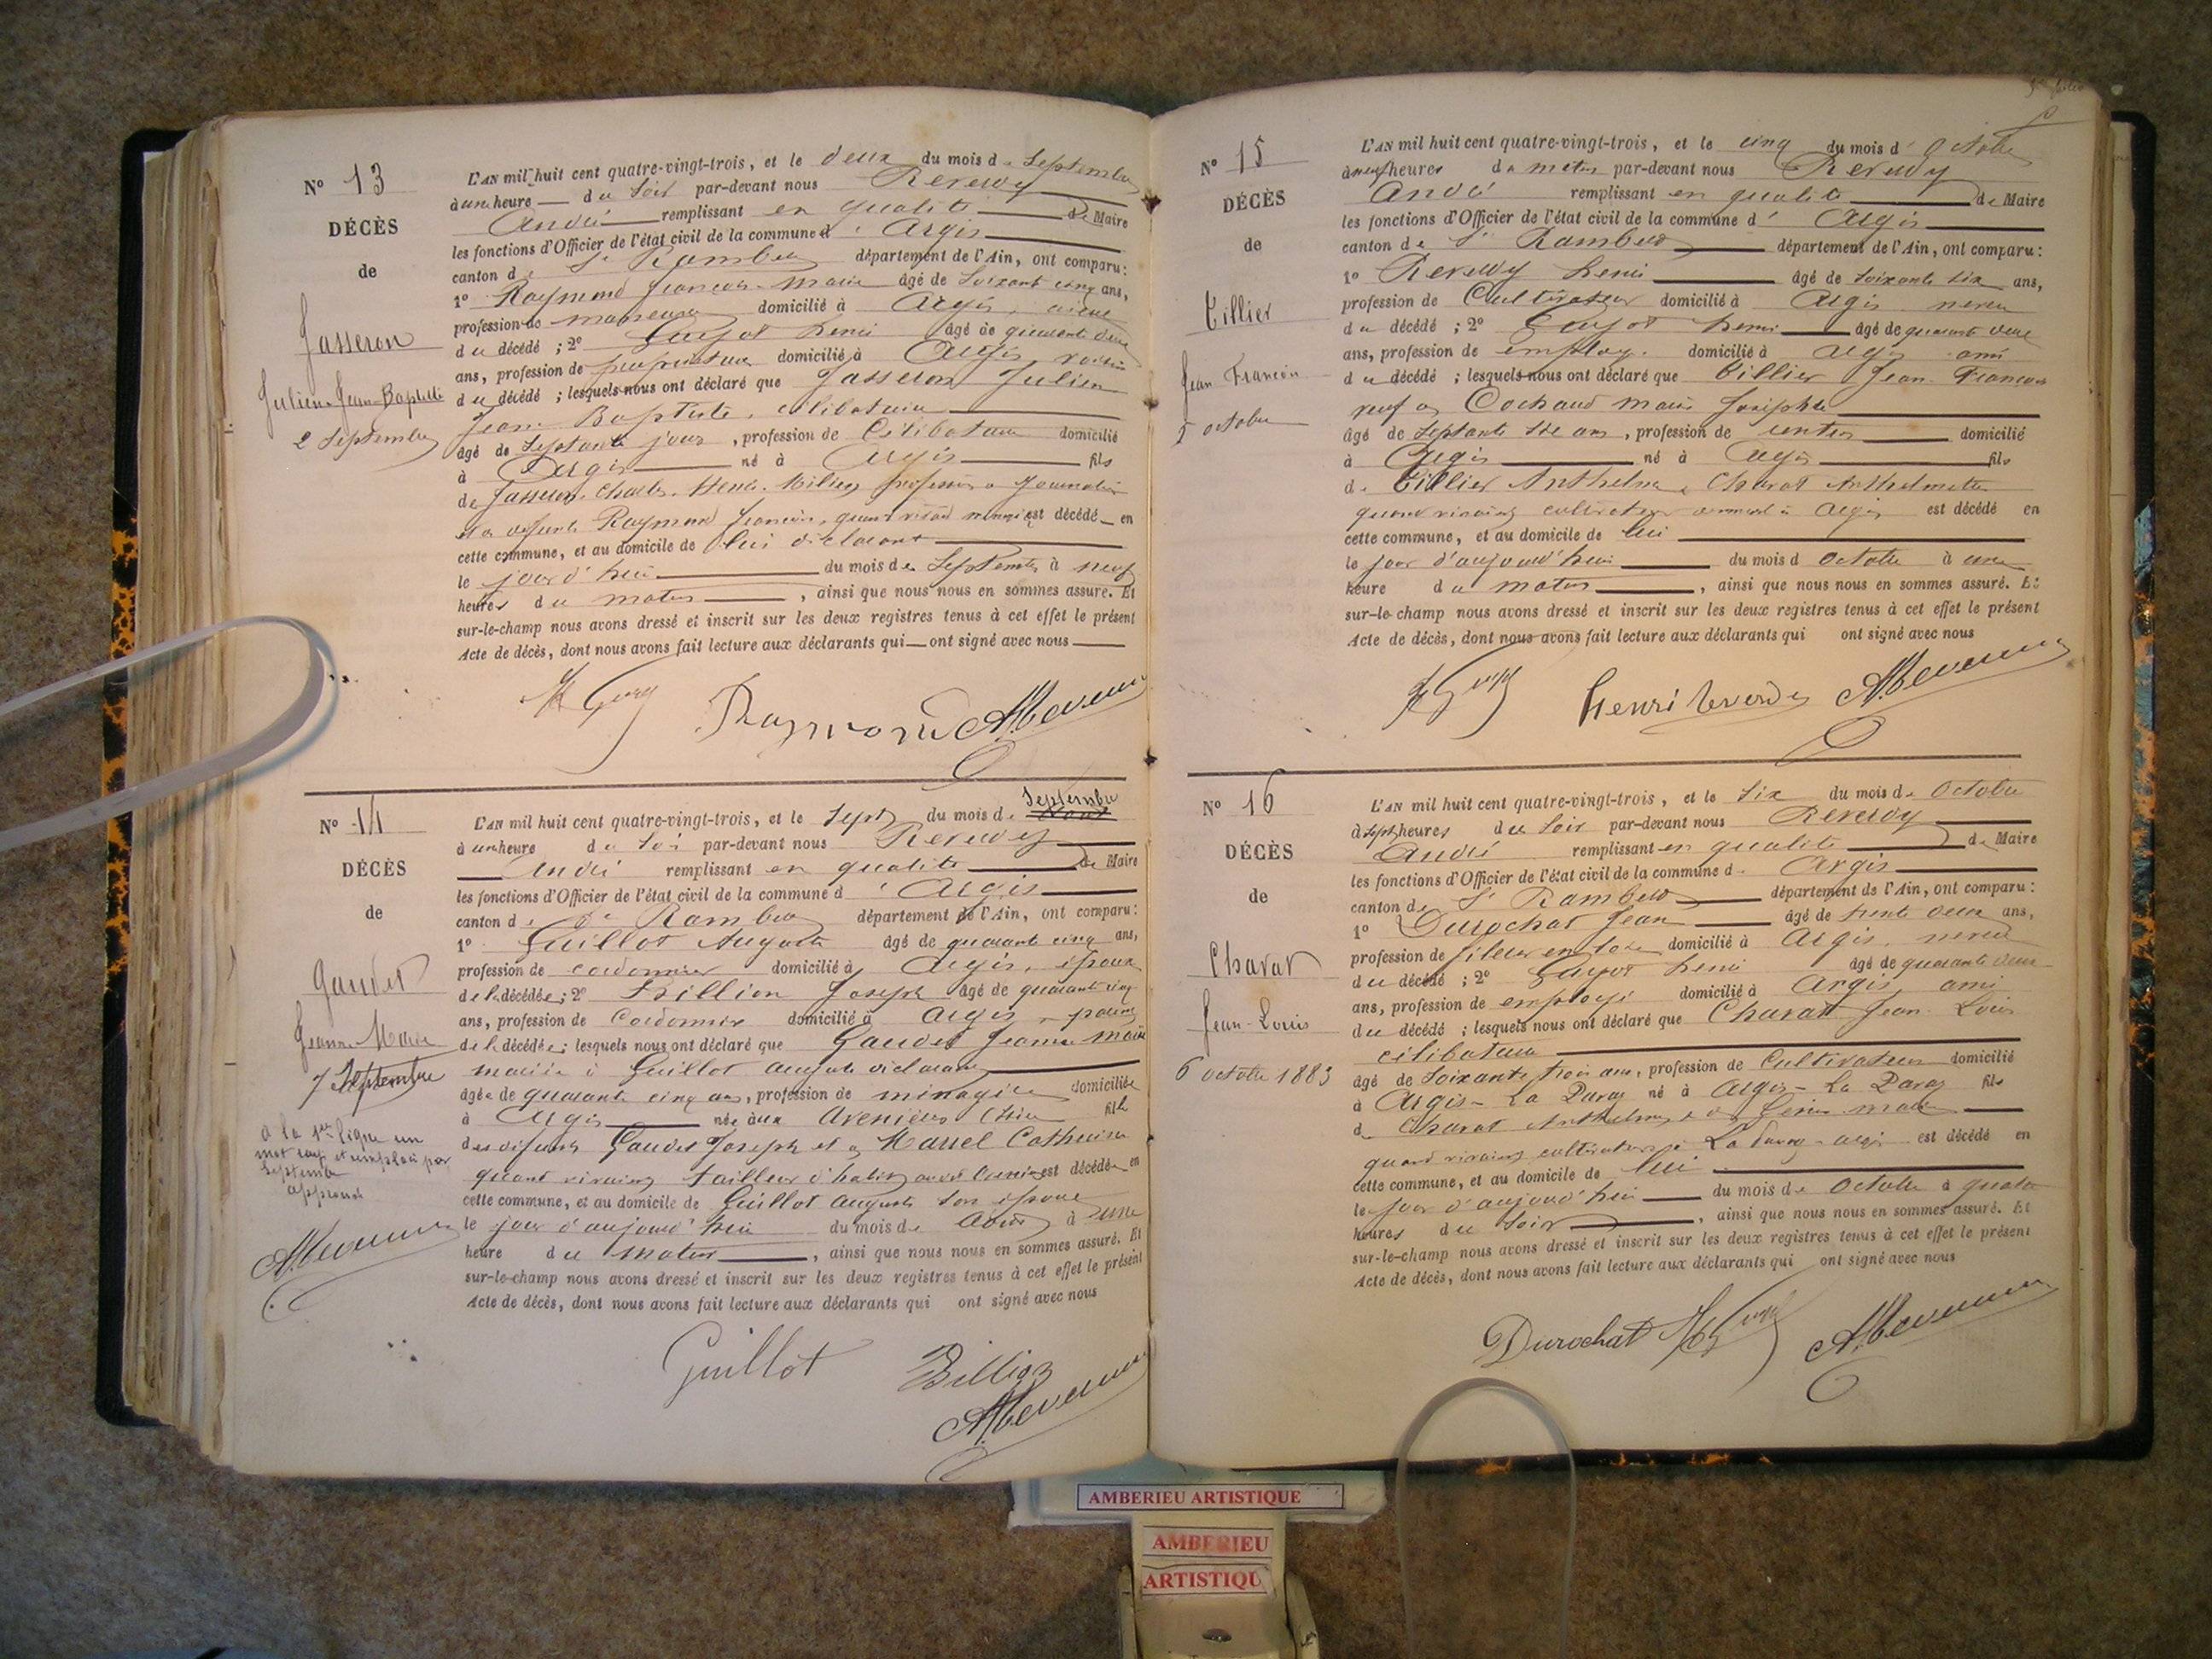 N° 13
DÉCÈS
de
Jasseron
Julien-Jean-Baptiste
2 Septembre
L'AN mil huit cent quatre-vingt-trois, et le deux du mois de Septembre
à une heure du soir par-devant nous Reverdy
André remplissant en qualité de Maire
les fonctions d'Officier de l'état civil de la commune d' Argis
canton de St Rambert département de l'Ain, ont comparu :
1° Raymond François-Marie âgé de soixante cinq ans,
profession de manoeuvre domicilié à Argis, aieul
du décédé ; 2° Guyot Henri âgé de quarante deux
ans, profession de domicilié à Argis voisin
du décédé ; lesquels nous ont déclaré que Jasseron Julien
Jean Baptiste, célibataire
âgé de septante jours, profession de Célibataire domicilié
à Argis né à Argis fils
de Jasseron Charles Henri journalier
et de défunte Raymond quand vivait est décédé en
cette commune, et au domicile de lui déclarant
le jour d'hui du mois de Septembre à neuf
heures du matin, ainsi que nous nous en sommes assuré. Et
sur-le-champ nous avons dressé et inscrit sur les deux registres tenus à cet effet le présent
Acte de décès, dont nous avons fait lecture aux déclarants qui ont signé avec nous
Raymond
N° 14
DÉCÈS
de
Gaudet
Jeanne-Marie
7 Septembre
à la 1re ligne un
mot et remplacé par
Septembre
approuvé
L'AN mil huit cent quatre-vingt-trois, et le sept du mois de Septembre
à une heure du soir par-devant nous Reverdy
André remplissant en qualité de Maire
les fonctions d'Officier de l'état civil de la commune d' Argis
canton de St Rambert département de l'Ain, ont comparu :
1° Guillot Auguste âgé de quarante cinq ans,
profession de cordonnier domicilié à Argis, époux
de la décédée ; 2° Billion Joseph âgé de quarante cinq
ans, profession de Cordonnier domicilié à Argis
de la décédée ; lesquels nous ont déclaré que Gaudet Jeanne Marie
mariée à Guillot Auguste déclarant
âgée de quarante cinq ans, profession de ménagère domiciliée
à Argis née aux Avenières Isère fille
des défunts Gaudet Joseph et de Marrel Catherine
quand vivaient tailleur d'habits est décédée en
cette commune, et au domicile de Guillot Auguste son époux
le jour d'aujourd'hui du mois de Août à une
heure du matin, ainsi que nous nous en sommes assuré. Et
sur-le-champ nous avons dressé et inscrit sur les deux registres tenus à cet effet le présent
Acte de décès, dont nous avons fait lecture aux déclarants qui ont signé avec nous
Guillot Billion
N° 15
DÉCÈS
de
Tillier
Jean François
5 octobre
L'AN mil huit cent quatre-vingt-trois, et le cinq du mois d' Octobre
à neuf heures du matin par-devant nous Reverdy
André remplissant en qualité de Maire
les fonctions d'Officier de l'état civil de la commune d' Argis
canton de St Rambert département de l'Ain, ont comparu :
1° Reverdy Henri âgé de soixante six ans,
profession de Cultivateur domicilié à Argis neveu
du décédé ; 2° Guyot Henri âgé de quarante deux
ans, profession de employé domicilié à Argis ami
du décédé ; lesquels nous ont déclaré que Tillier Jean François
veuf de Cochaud Marie Josephte
âgé de septante six ans, profession de rentier domicilié
à Argis né à Argis fils
de Tillier Anthelme Charat Anthelmette
quand vivaient cultivateur à Argis est décédé en
cette commune, et au domicile de lui
le jour d'aujourd'hui du mois d Octobre à une
heure du matin, ainsi que nous nous en sommes assuré. Et
sur-le-champ nous avons dressé et inscrit sur les deux registres tenus à cet effet le présent
Acte de décès, dont nous avons fait lecture aux déclarants qui ont signé avec nous
Henri Reverdy
N° 16
DÉCÈS
de
Charat
Jean-Louis
6 octobre 1883
L'AN mil huit cent quatre-vingt-trois, et le six du mois de Octobre
à sept heures du soir par-devant nous Reverdy
André remplissant en qualité de Maire
les fonctions d'Officier de l'état civil de la commune d. Argis
canton de St Rambert département de l'Ain, ont comparu :
1° Durochat Jean âgé de trente deux ans,
profession de fileur en soie domicilié à Argis, neveu
du décédé ; 2° Guyot Henri âgé de quarante deux
ans, profession de employé domicilié à Argis, ami
du décédé ; lesquels nous ont déclaré que Charat Jean Louis
célibataire
âgé de soixante trois ans, profession de Cultivateur domicilié
à Argis - né à Argis - fils
de Charat Anthelme
quand vivaient cultivateurs à est décédé en
cette commune, et au domicile de lui
le jour d'aujourd'hui du mois de Octobre à quatre
heures du soir, ainsi que nous nous en sommes assuré. Et
sur-le-champ nous avons dressé et inscrit sur les deux registres tenus à cet effet le présent
Acte de décès, dont nous avons fait lecture aux déclarants qui ont signé avec nous
Durochat
AMBERIEU ARTISTIQUE
AMBERIEU
ARTISTIQU